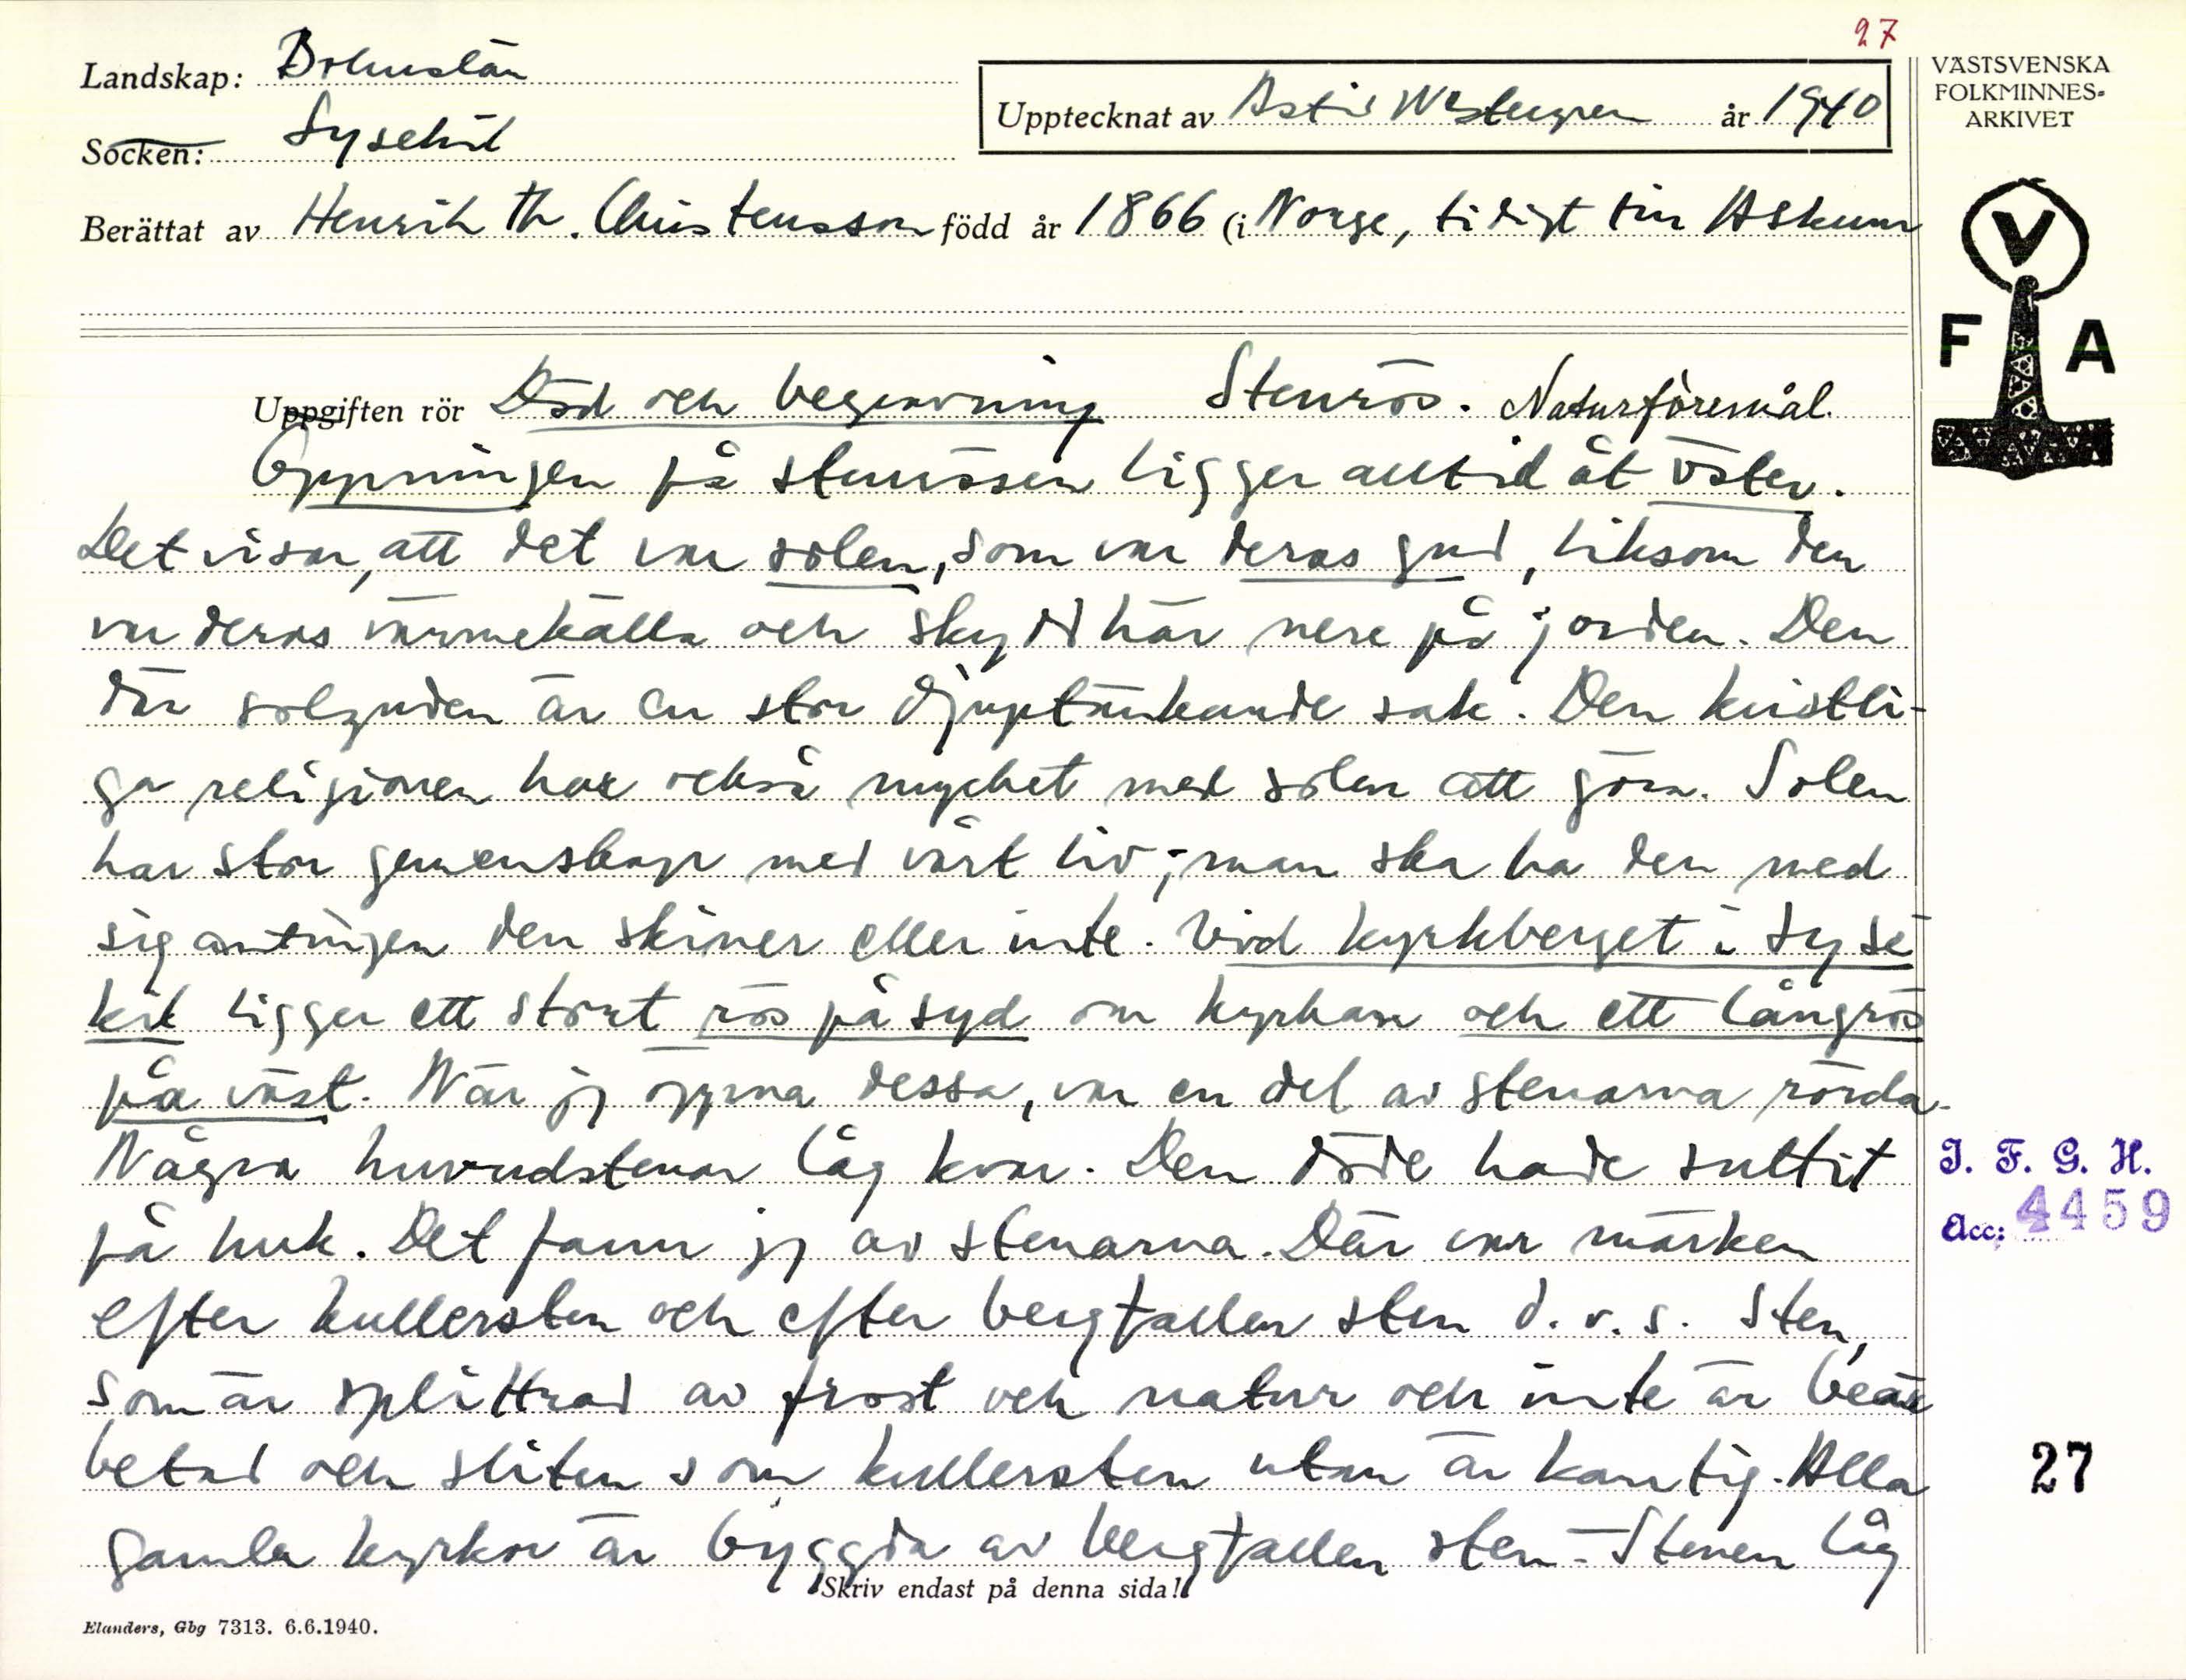 27
Landskap: Bohuslän
Socken: Lysekil
Upptecknat av Astrid Westergren år 1940
VÄSTSVENSKA
FOLKMINNES-
ARKIVET
Berättat av Henrik Th. Christensson född år 1866 (i Norge, tidigt till Askum
V
F A
Uppgiften rör Död och begravning Stenrös. Naturföremål.
Öppningen på stenrösen ligger alltid åt väster.
Det visar, att det var solen, som var deras gud, liksom den
var deras värmekälla och skydd här nere på jorden. Den
där solguden är en stor djuptänkande sak. Den kristli-
ga religionen har också mycket med solen att göra. Solen
har stor gemenskap med vårt liv; man ska ha den med
sig antingen den skiner eller inte. Vid kyrkberget i Lyse
kil ligger ett stort rös på syd om kyrkan och ett långrös
på väst. När jg öppna dessa, var en del av stenarna rörda.
Några huvudstenar låg kvar. Den döde hade suttit
på huk. Det fann jg av stenarna. Där var märken
efter kullersten och efter bergfallen sten d.v.s. sten,
som är splittrad av frost och natur och inte är bear
betad och sliten som kullersten utan är kantig. Alla
gamla kyrkor är byggda av bergfallen sten. - Stenen låg
Skriv endast på denna sida!
Elanders, Gbg 7313. 6.6.1940.
I. F. G. H.
Acc: 4459
27